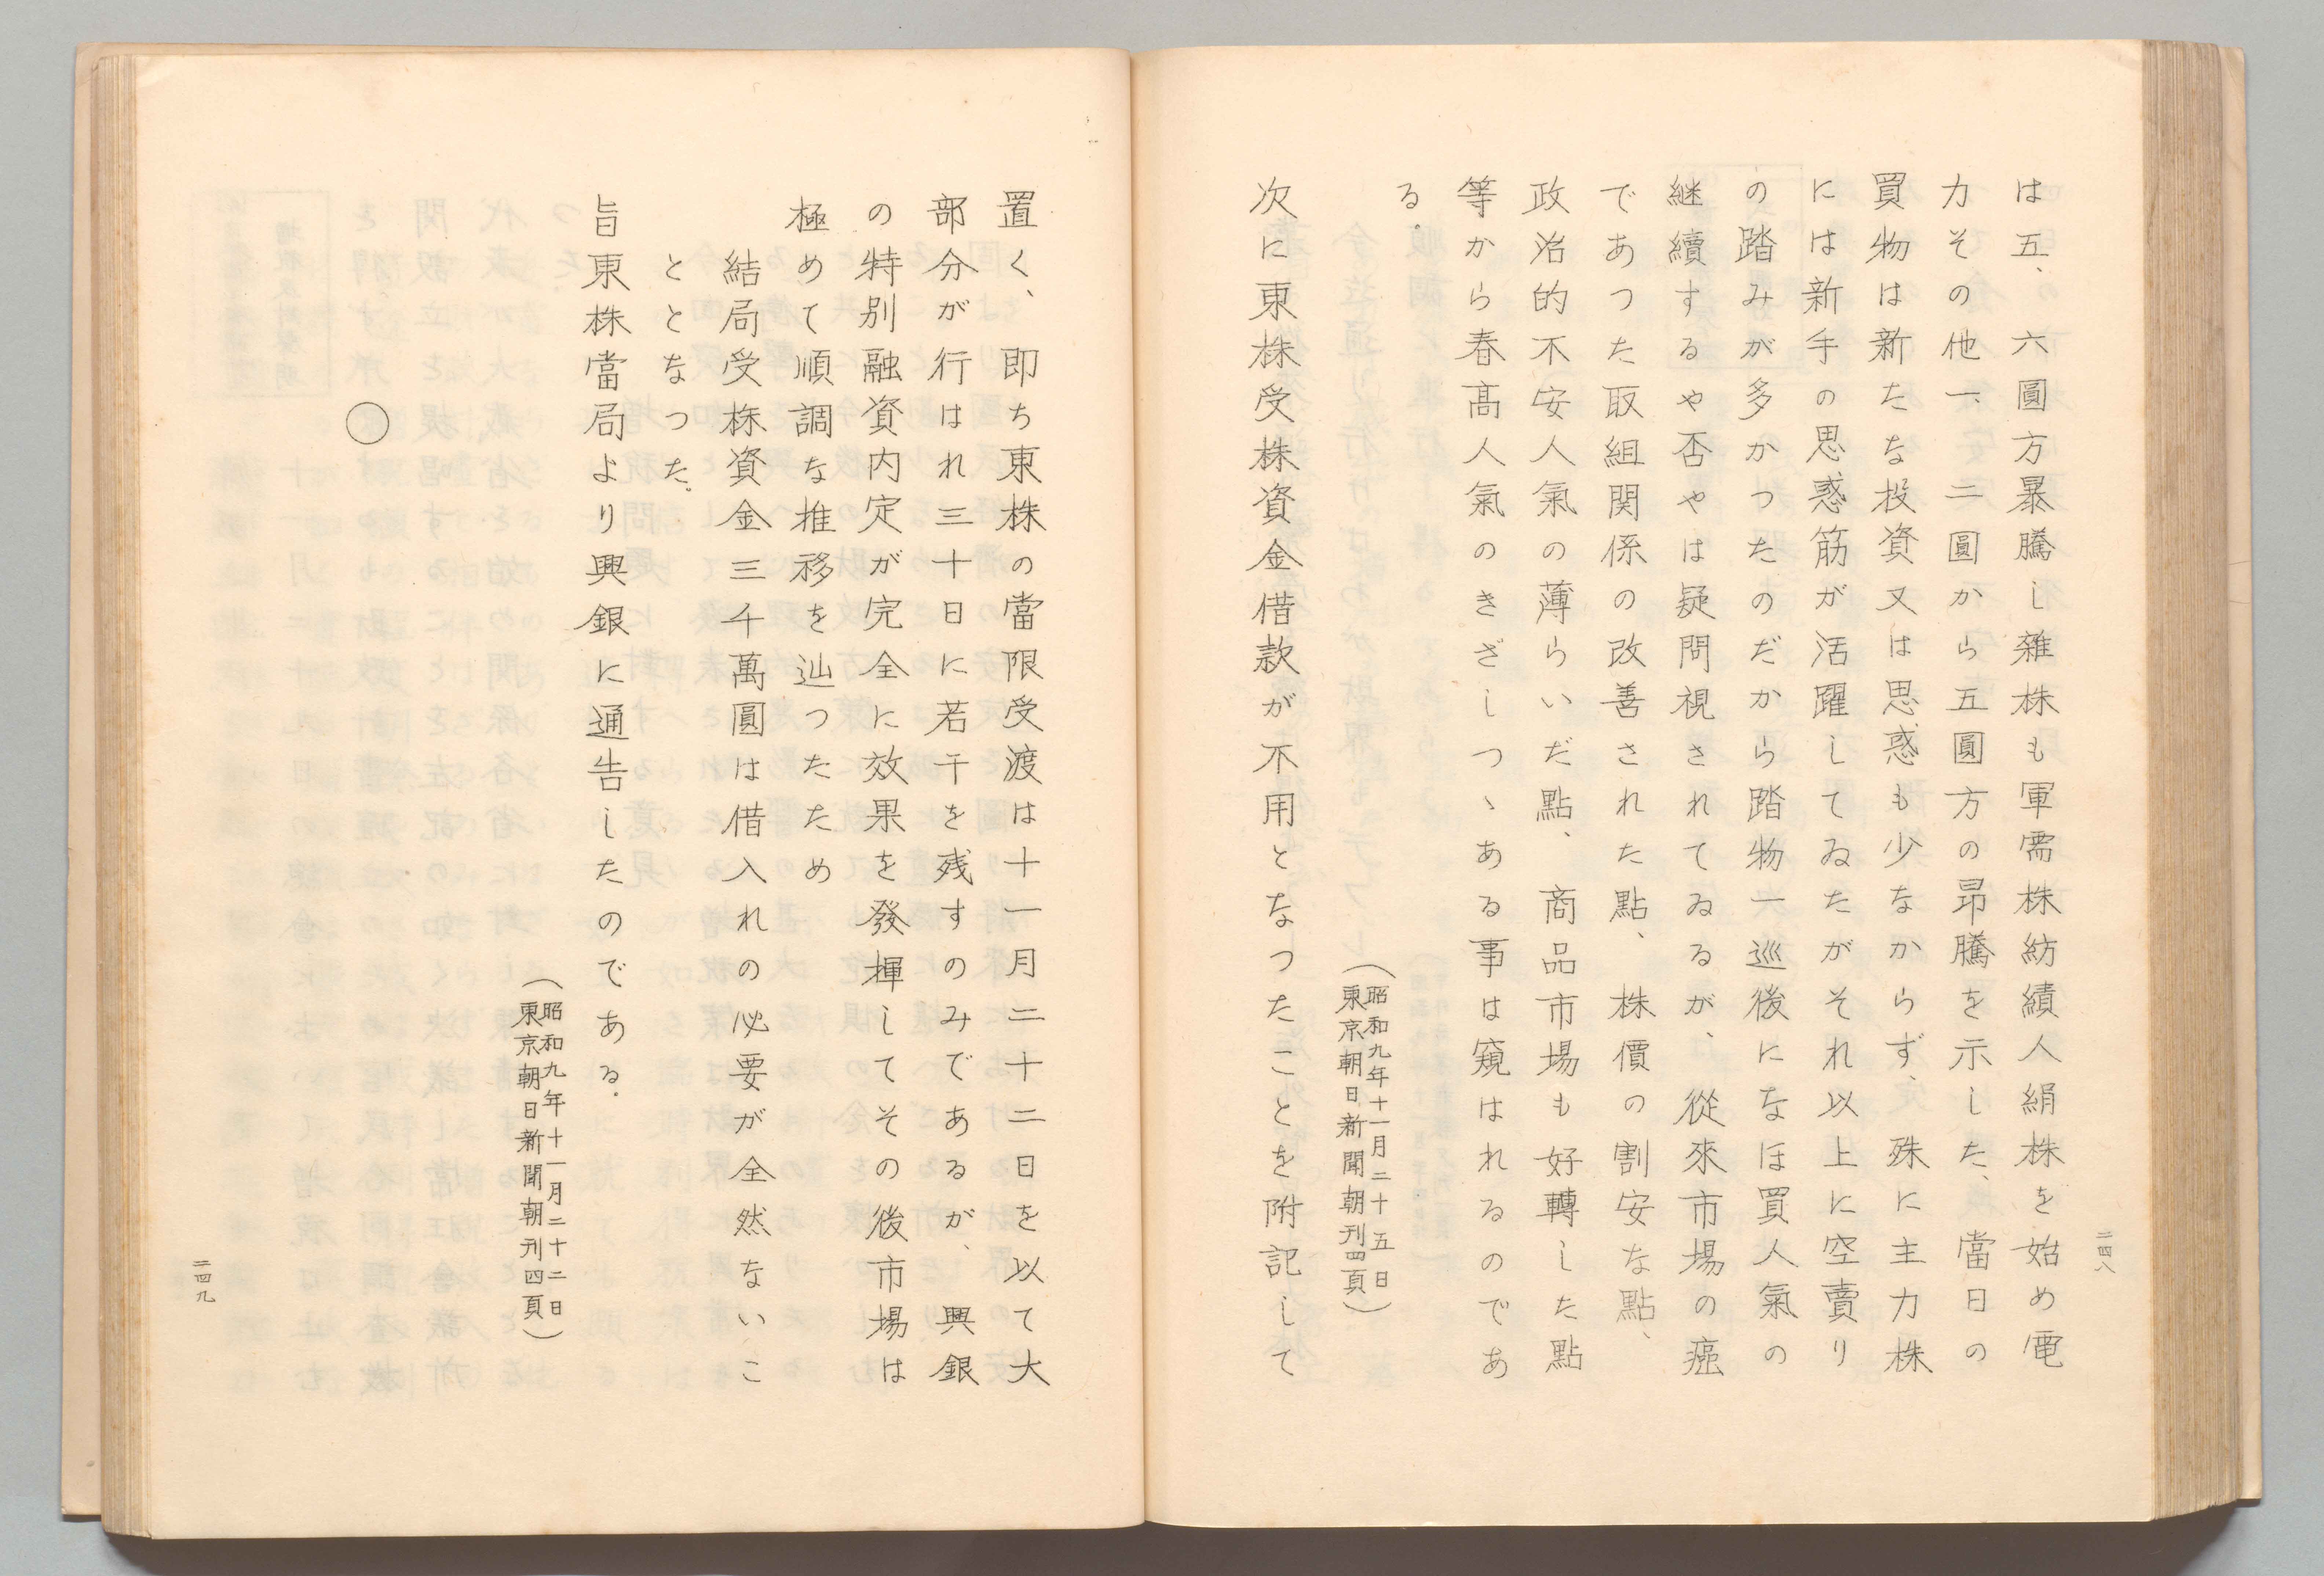 は五、六圓方暴騰し雜株も軍需株紡績人絹株を始め電
力その他一、二圓から五圓方の昻騰を示した、當日の
買物は新たな投資又は思惑も少なからず、殊に主力株
には新手の思惑筋が活躍してゐたがそれ以上に空賣り
の踏みが多かつたのだから踏物一巡後になほ買人氣の
継續するや否やは疑問視されてゐるが、從來市場の癌
であつた取組関係の改善された點、株價の割安な點、
政治的不安人氣の薄らいだ點、商品市場も好轉した點
等から春高人氣のきざしつゝある事は窺はれるのであ
る。
（昭和九年十一月二十五日
東京朝日新聞朝刊四頁）
次に東株受株資金借款が不用となつたことを附記して
二四八
置く、即ち東株の當限受渡は十一月二十二日を以て大
部分が行はれ三十日に若干を残すのみであるが、興銀
の特別融資内定が完全に效果を發揮してその後市場は
極めて順調な推移を辿つたため
結局受株資金三千萬圓は借入れの必要が全然ないこ
ととなつた。
旨東株當局より興銀に通告したのである。
（昭和九年十一月二十二日
東京朝日新聞朝刊四頁）
○
二四九